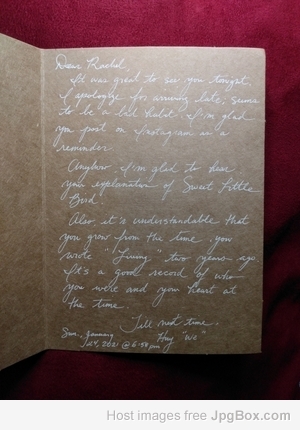 Dear Rachel,
It was great to see you tonight.
I apologize for arriving late, seems
to be a bad habit. I'm glad
you post on Instagram as a
reminder.
Anyhow, I'm glad to hear
your explanation of Sweet Little
Bird.
Also, it's understandable that
you grow from the time you
wrote "Living" two years ago.
It's a good record of who
you were and your heart at
the time.
Till next time,
"We"
Sun. January
24, 2021 @ 6:58 pm
Host images free JpgBox.com